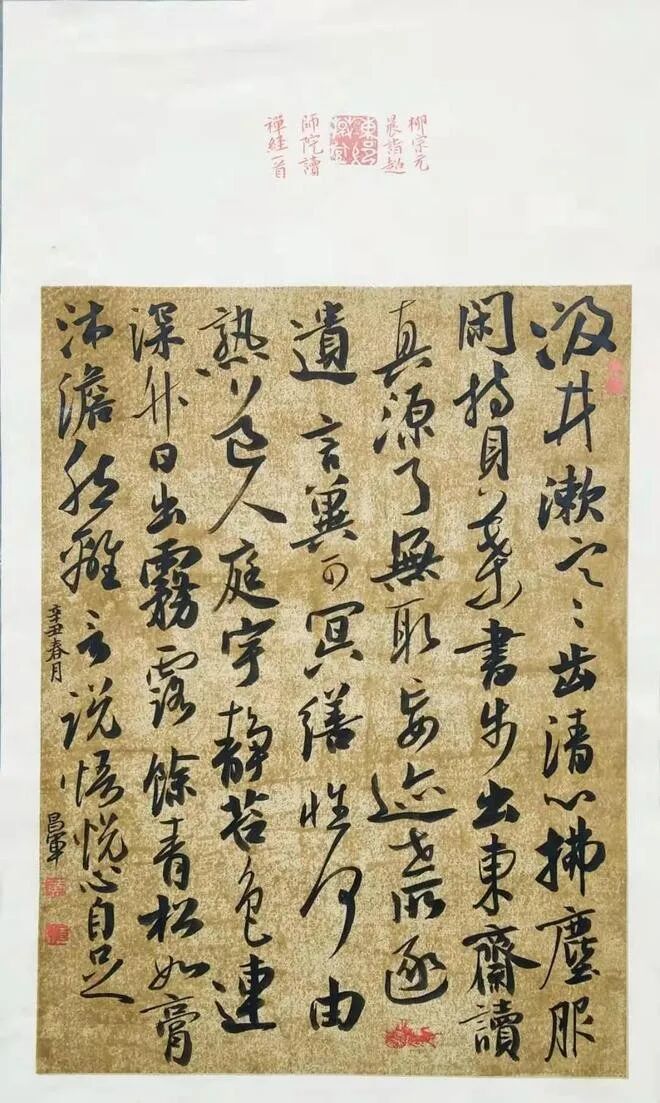 柳宗元
晨詣超
師院讀
禪經一首
汲井漱寒齒清心拂塵服
閑持貝葉書步出東齋讀
真源了無取妄迹世所逐
遺言冀可冥繕性何由
熟道人庭宇靜苔色連
深竹日出霧露餘青松如膏
沐澹然離言説悟悦心自足
辛丑春月
昌軍